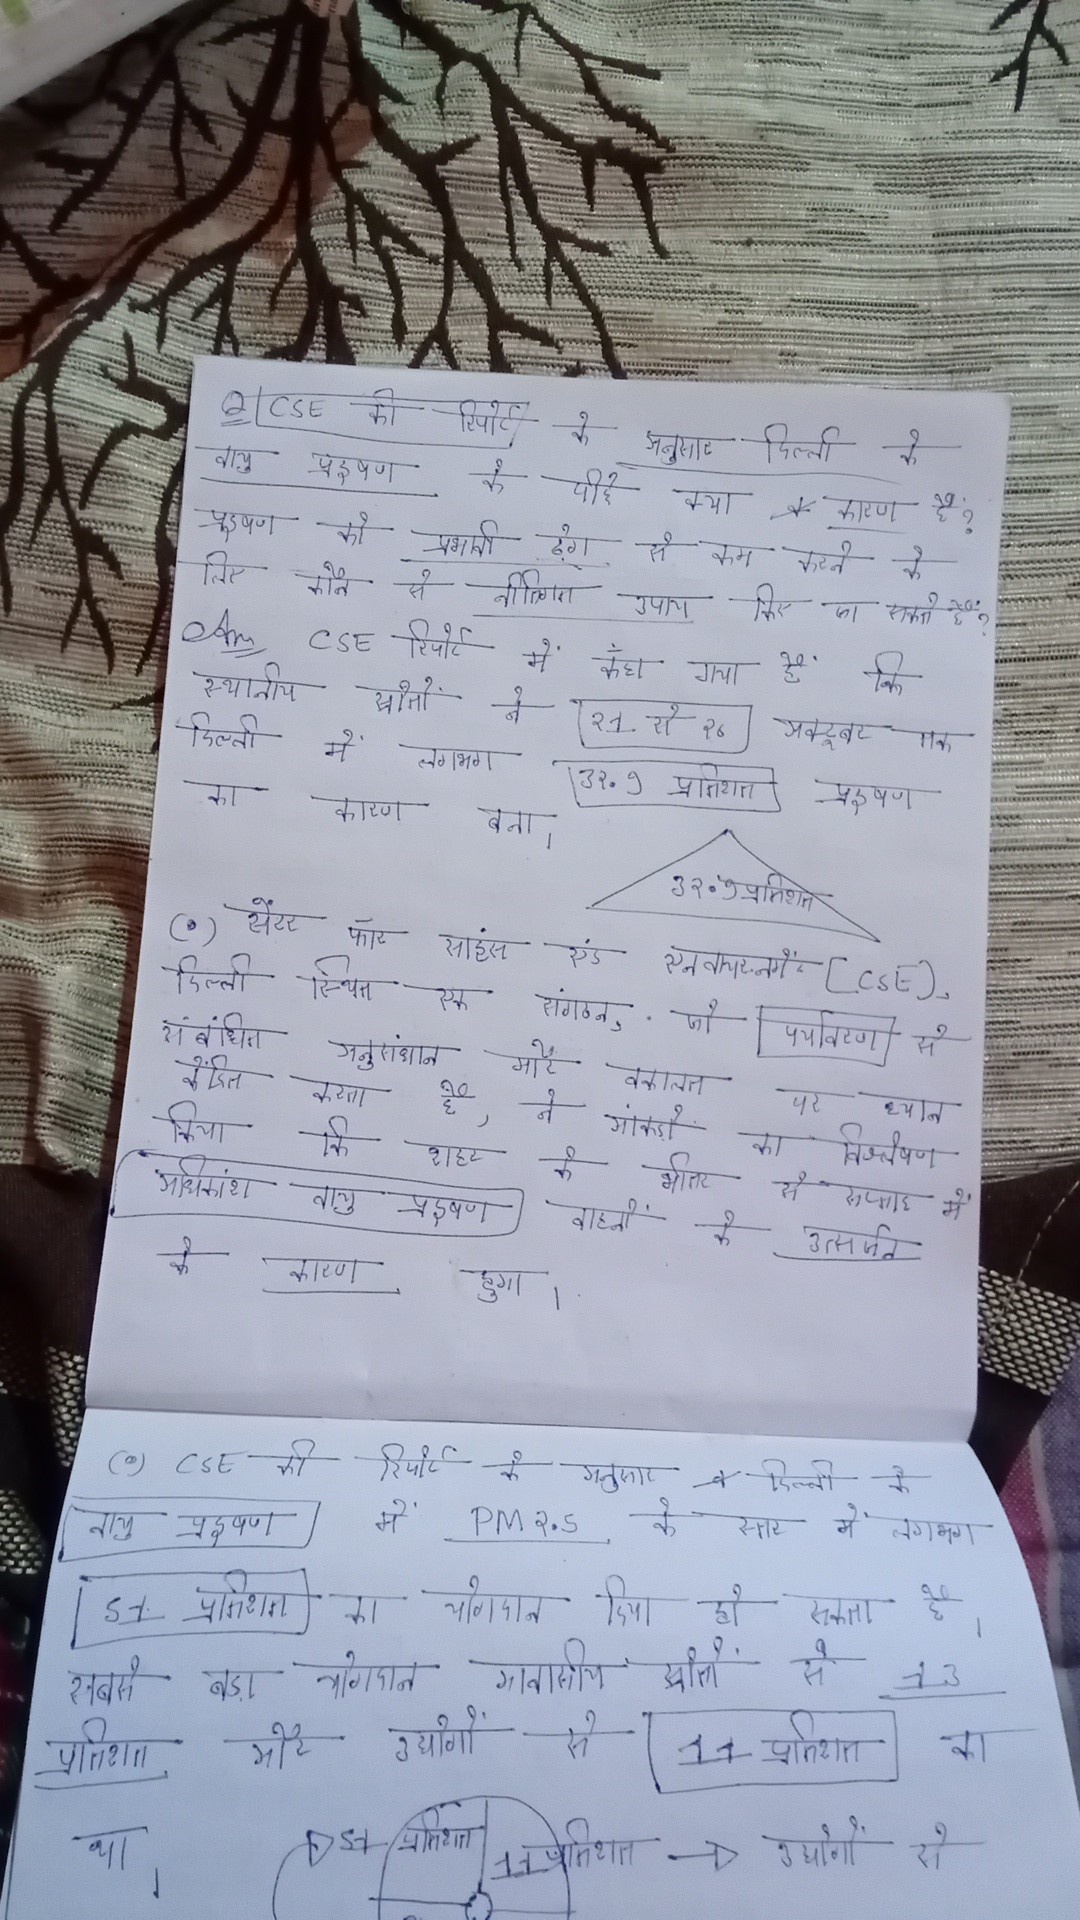 Q CSE की रिपोर्ट के अनुसार दिल्ली के
वायु प्रदूषण के पीछे क्या कारण हैं?
प्रदूषण को प्रभावी ढंग से कम करने के
लिए कौन से नीतिगत उपाय किए जा सकते हैं?
Ans CSE रिपोर्ट में कहा गया है कि
स्थानीय स्रोतों ने 21 से 26 अक्टूबर तक
दिल्ली में लगभग 32.9 प्रतिशत प्रदूषण
का कारण बना।
32.9 प्रतिशत
(•) सेंटर फॉर साइंस एंड एनवायरनमेंट (CSE),
दिल्ली स्थित एक संगठन, जो पर्यावरण से
संबंधित अनुसंधान और वकालत पर ध्यान
केंद्रित करता है, ने आंकड़ों का विश्लेषण
किया कि शहर के भीतर से सप्ताह में
अधिकांश वायु प्रदूषण वाहनों के उत्सर्जन
के कारण हुआ।
(•) CSE की रिपोर्ट के अनुसार दिल्ली के
वायु प्रदूषण में PM 2.5 के स्तर में लगभग
51 प्रतिशत का योगदान दिया हो सकता है।
सबसे बड़ा योगदान आवासीय स्रोतों से 13
प्रतिशत और उद्योगों से 11 प्रतिशत का
था।
51 प्रतिशत
11 प्रतिशत → उद्योगों से